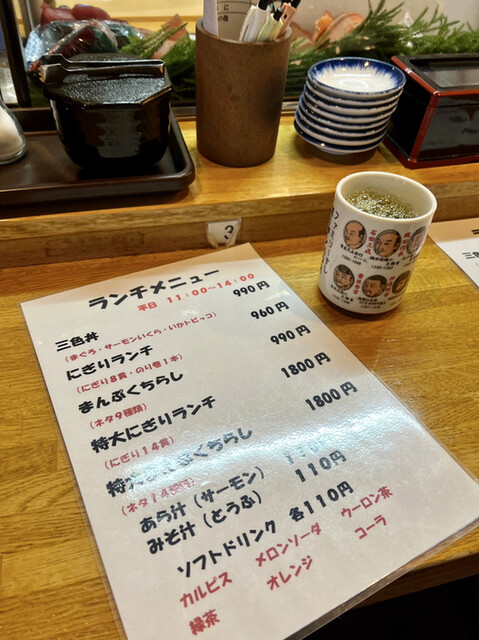 3
ランチメニュー
平日 11:00~14:00
三色丼 990円
(まぐろ・サーモンいくら・いかトビッコ)
にぎりランチ 960円
(にぎり8貫・のり巻1本)
まんぷくちらし 990円
(ネタ9種類)
特大にぎりランチ 1800円
(にぎり14貫)
ぷくちらし 1800円
(ネタ14
あら汁(サーモン)
みそ汁(とうふ) 110円
ソフトドリンク 各110円
カルピス メロンソーダ ウーロン茶
緑茶 オレンジ コーラ
三色